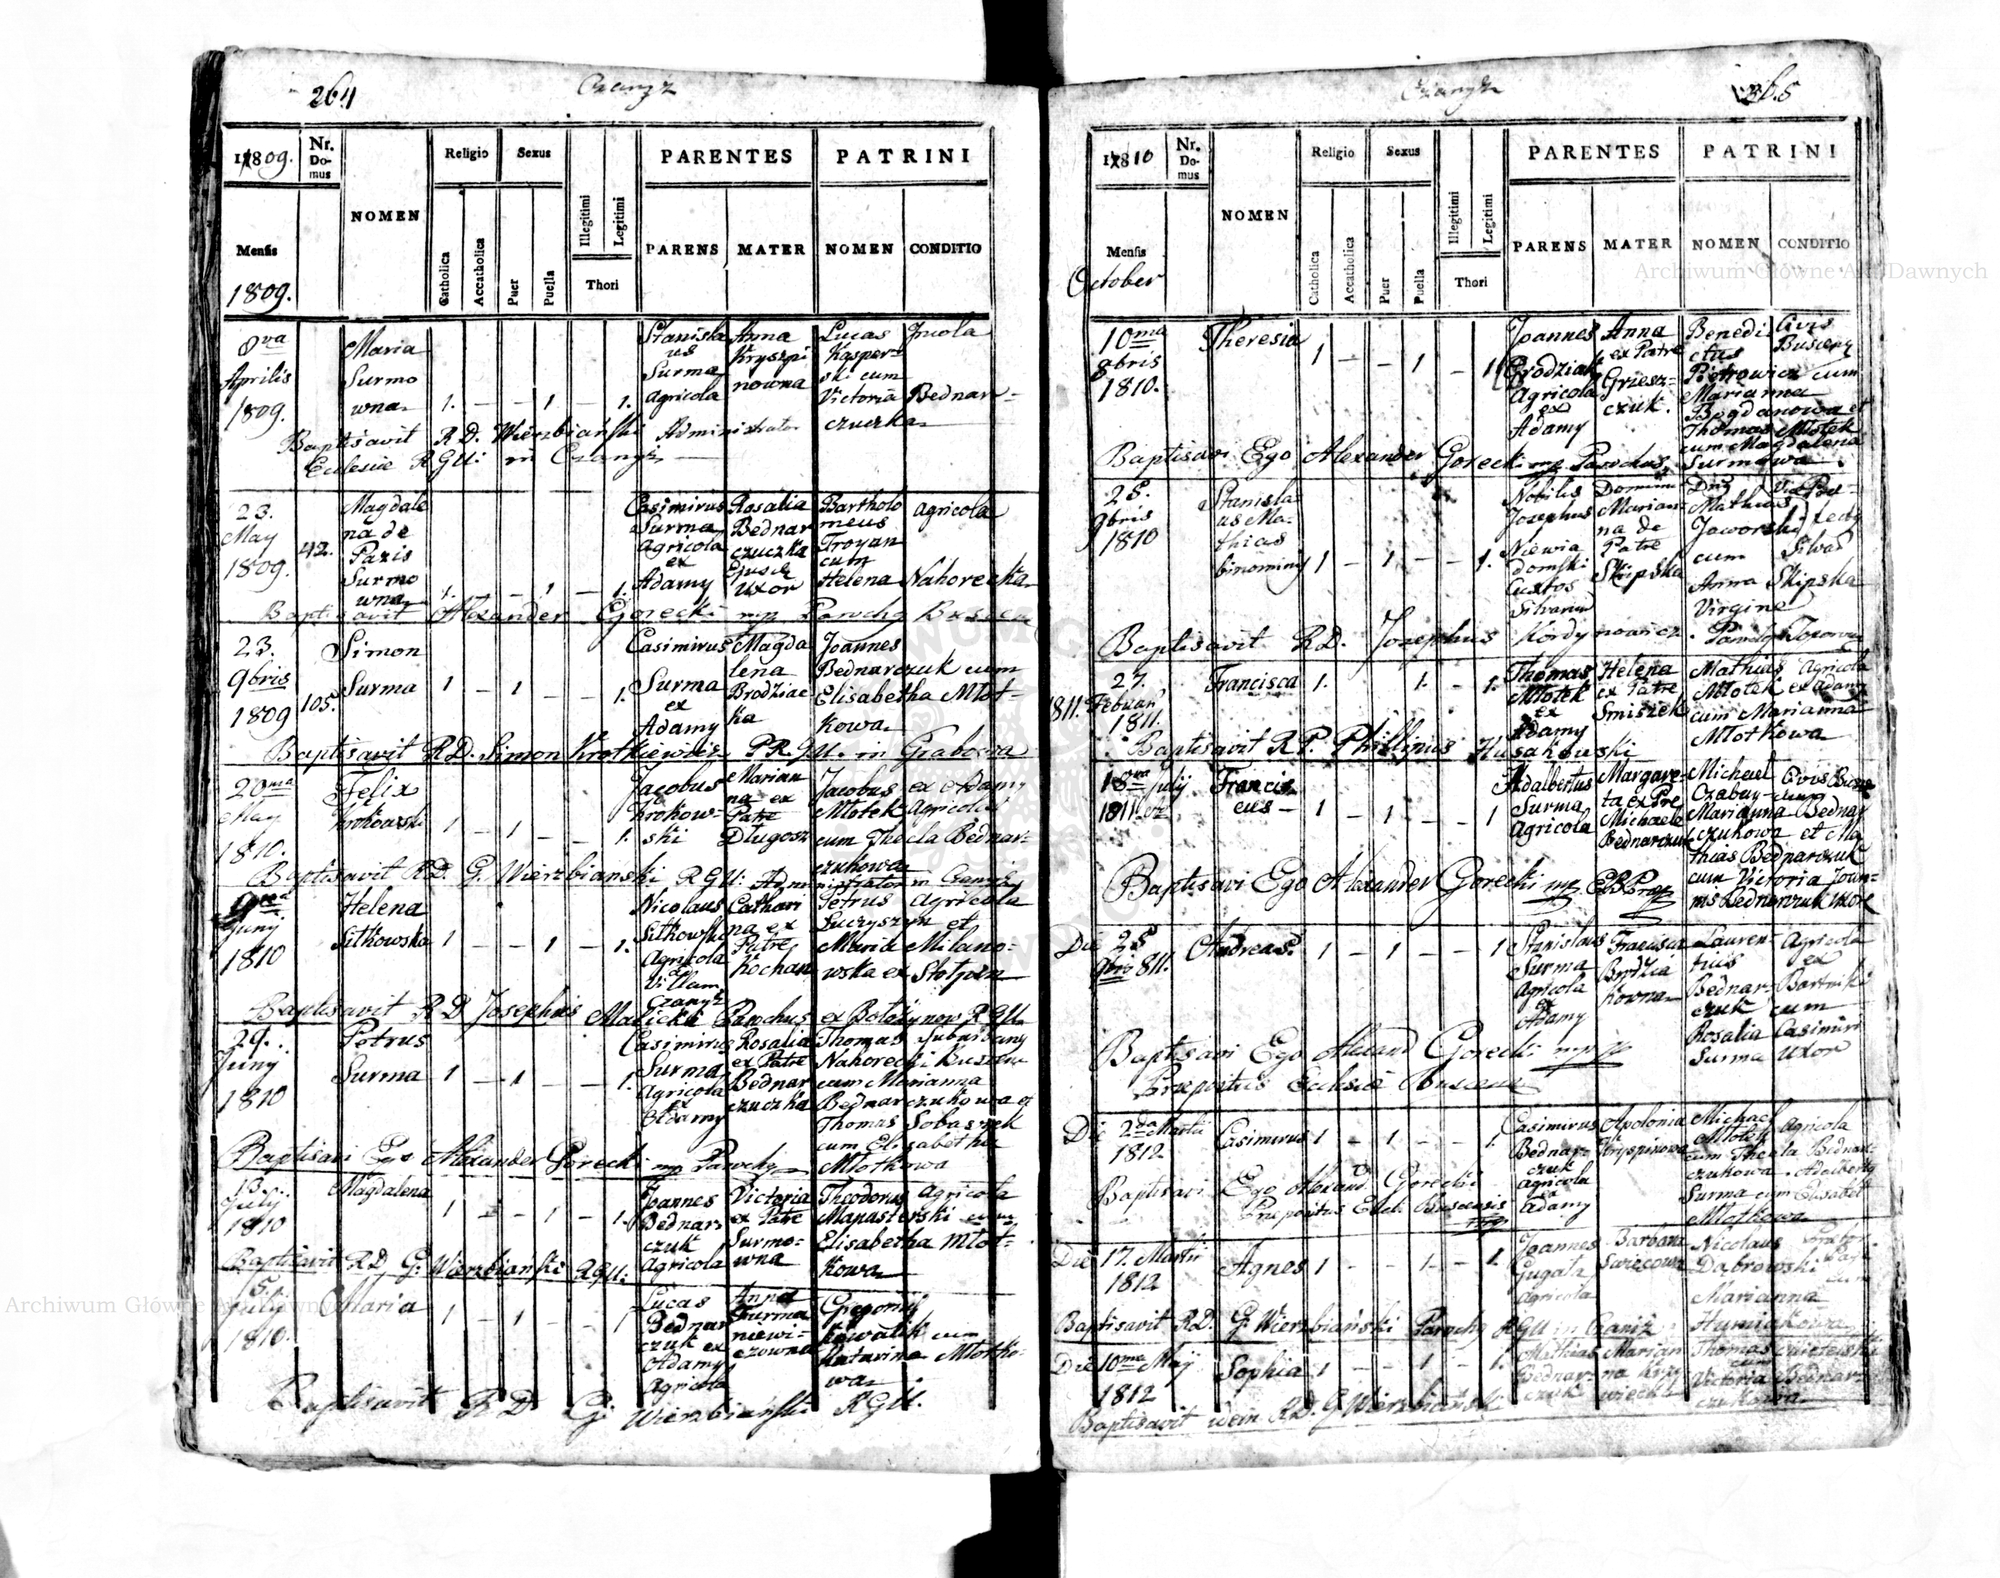 264
Czanyż
1809.
Nr. Domus
NOMEN
Religio
Sexus
PARENTES
PATRINI
Mensis
1809.
Catholica
Accatholica
Puer
Puella
Illegitimi
Legitimi
Thori
PARENS
MATER
NOMEN
CONDITIO
8va Aprilis 1809.
Maria Surmowna
1. – – 1 – 1.
Stanislaus Surma Agricola
Anna Kryszpinowna
Lucas Kasperski cum Victoria Bednarczuczka
Incola
Baptisavit R.D. Wierzbiański Administrator
Ecclesiae R.G.U: in Czanyż
23. May 1809.
42.
Magdalena de Pazis Surmowna
1. – – 1 – 1.
Casimirus Surma agricola ex Adamy
Rosalia Bednarczuczka Ejusq Uxor
Bartholomeus Troyan cum Helena Nahorecka
agricola
Baptisavit Alexander Gorecki mp Parochq
23. 9bris 1809
105.
Simon Surma
1 – 1 – – 1.
Casimirus Surma ex Adamy
Magdalena Brodziacka
Joannes Bednarczuk cum Elisabetha Młotkowa
Baptisavit R.D. Simon Krotkiewicz P.R.G.U. in Grabowa
20ma May 1810.
Felix Krokowski
1 – 1 – – 1.
Jacobus Krokowski
Marianna ex Patre Długosz
Jacobus ex Adamy Młotek Agricola cum Thecla Bednarczukowa
Baptisavit R.D. G. Wierzbianski R.G.U: Administrator in Czanyż
Juny 1810
Helena Sitkowska
1 – – 1 – 1.
Nicolaus Sitkowski Agricola Villam Czanyż
Catharina ex Patre Kochan
Petrus Luczyszyn et Maria Milanowska ex Stołpin
Agricola
Baptisavit R.D. Josephus Malicki Parochus ex Bołożynow R.G.U.
29. Juny 1810
Petrus Surma
1 – 1 – – 1.
Casimirus Surma Agricola ex Adamy
Rosalia ex Patre Bednarczuczka
Thomas Nahorecki cum Marianna Bednarczukowa et Thomas Sobaszek cum Elisabetha Młotkowa
Baptisavi Ego Alexander Gorecki mp Parochq
13. July 1810
Magdalena
1 – – 1 – 1.
Joannes Bednarczuk Agricola
Victoria ex Patre Surmowna
Theodorus Manasterski cum Elisabetha Młotkowa
Agricola
Baptisavit R.D. G: Wierzbiański R.G.U.
15. July 1810.
Maria
1 – 1 – – 1
Lucas Bednarczuk ex Adamy Agricola
Anna Furmaniewiczowna
Gregorius Kowalik cum Katarina Młotkowa
Baptisavit R.D. G: Wierzbiański R.G.U.
265
Czanyż
1810
Nr. Domus
NOMEN
Religio
Sexus
PARENTES
PATRINI
Mensis
October
Catholica
Accatholica
Puer
Puella
Illegitimi
Legitimi
Thori
PARENS
MATER
NOMEN
CONDITIO
10ma 8bris 1810.
Theresia
1 – – 1 – 1
Joannes Grodziak Agricola ex Adamy
Anna ex Patre Grieszczuk.
Benedictus Pietrowicz cum Marianna Bogdanowa et Thomas Młotek cum Magdalena Surmowa
Civis
Baptisavi Ego Alexander Gorecki mp Parochus
25. 9bris 1810
Stanislaus Mathias binominy
1 – 1 – – 1.
Nobilis Josephus Niewiadomski Custos Silvarum
Domina Marianna de Patre Skipska
Dnus Mathias Jaworski cum Anna Skipska Virgine
Baptisavit R.D. Josephus Kordynowicz
27. Febuar 1811.
1811.
Francisca
1. 1. – 1.
Thomas Młotek ex Adamy
Helena ex Patre Smiszek
Mathias Młotek cum Marianna Młotkowa
Agricola ex Adamy
Baptisavit R.P. Phillipus Husakowski
18va July 1811.
Franciscus
1 – 1 – – 1
Adalbertus Surma Agricola
Margareta ex Pre Michaele Bednarczuk
Michael Marianna Bednarczukowa et Mathias Bednarczuk cum Victoria Joannis Bednarczuk uxore
Baptisavi Ego Alexander Gorecki mp
Die 25 9bris 811.
Andreas.
1 – 1 – – 1
Stanislaus Surma Agricola ex Adamy
Francisca Brodziakowna
Laurentius Bednarczuk cum Rosalia Casimiri Surma Uxor
Agricola ex
Baptisavi Ego Alexand Gorecki mp
Praepositus Ecclesiae Buscensis
Die 2da Martii 1812
Casimirus
1 – 1 – – 1.
Casimirus Bednarczuk agricola ex Adamy
Apolonia Kryspinowa
Michael Młotek cum Thecla Bednarczukowa. Adalbertq Surma cum Elisabet Młotkowa
Agricola
Baptisavi Ego Alexand Gorecki
Praepositus Eccl: Buscensis
Die 17. Martii 1812
Agnes
1 – – 1 – 1.
Joannes Gugała Agricola
Barbara
Nicolaus Dąbrowski cum Marianna
Baptisavit R.D. G: Wierzbiański Parochq R.G.U in Czanyż
Die 10ma May 1812
Sophia
1 – – 1 – 1.
Mathias Bednarczuk
Marianna
Thomas cum Victoria Bednarczukowa
Baptisavit R.D. G Wierzbiański
Archiwum Główne Akt Dawnych